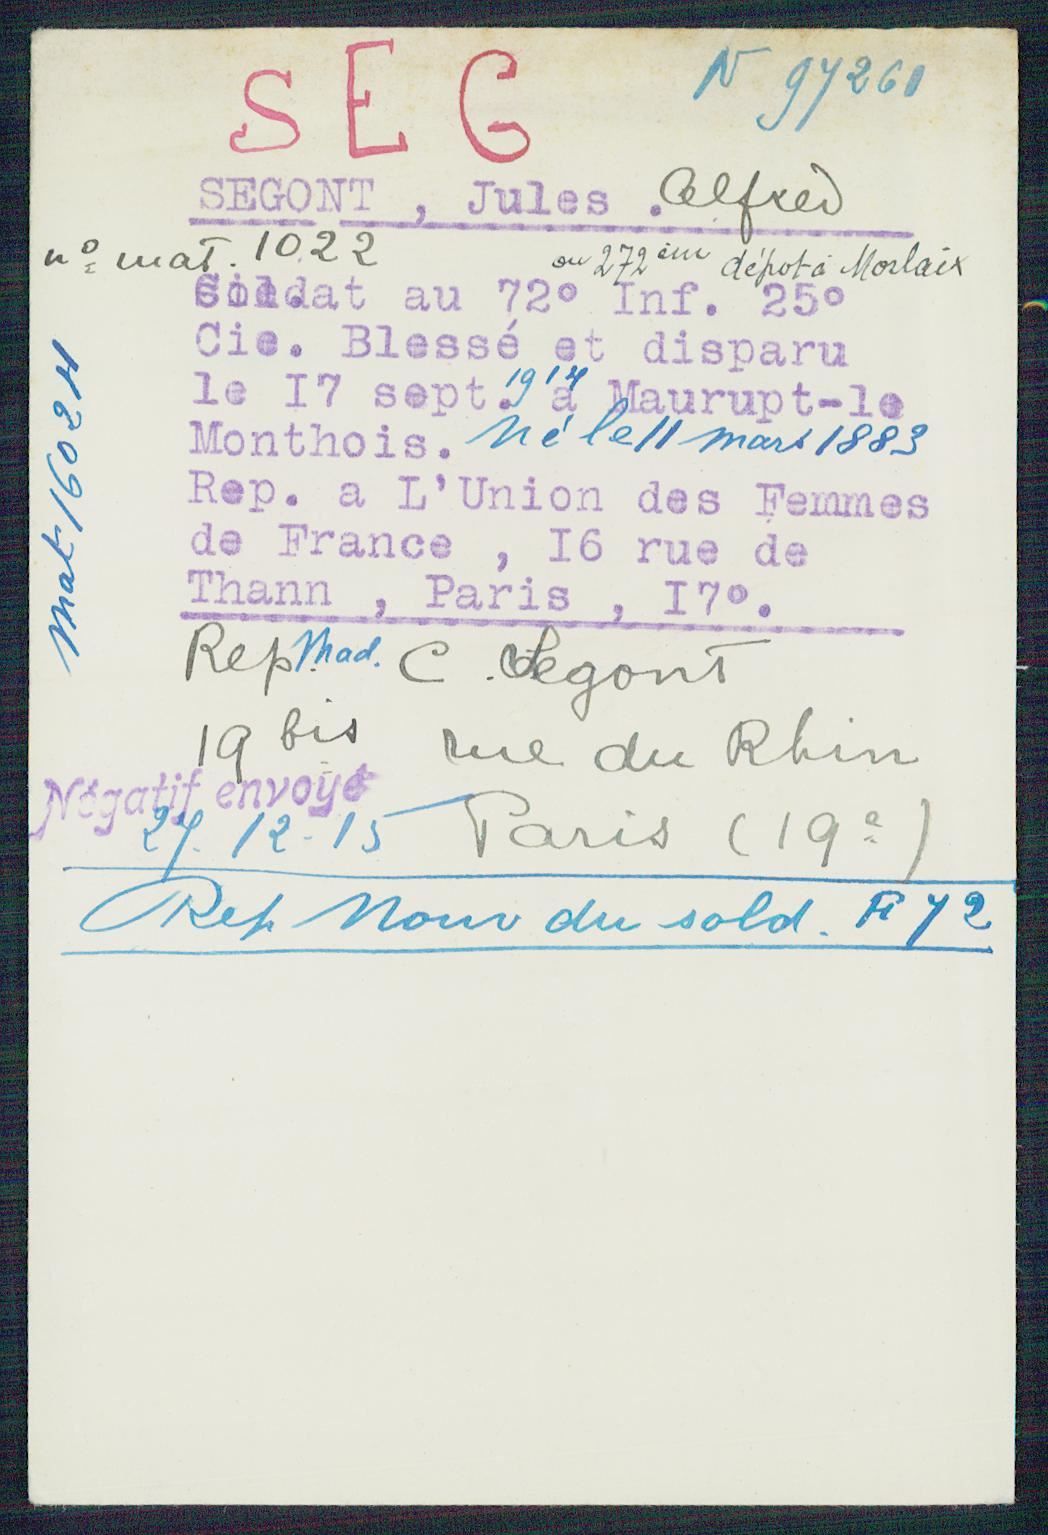 SEG
N 97260
SEGONT , Jules . Alfred
n° mat. 1022
ou 272ème dépot à Morlaix
Soldat au 72° Inf. 25°
Cie. Blessé et disparu
le I7 sept. 1914 à Maurupt-le
Monthois. Né le 11 mars 1883
Rep. a L'Union des Femmes
de France , I6 rue de
Thann , Paris , I7°.
Mat 16024
Rep. Mad. C. Segont
19 bis rue du Rhin
Négatif envoyé
27.12-15 Paris (19e)
Rep Nouv du sold. F 72